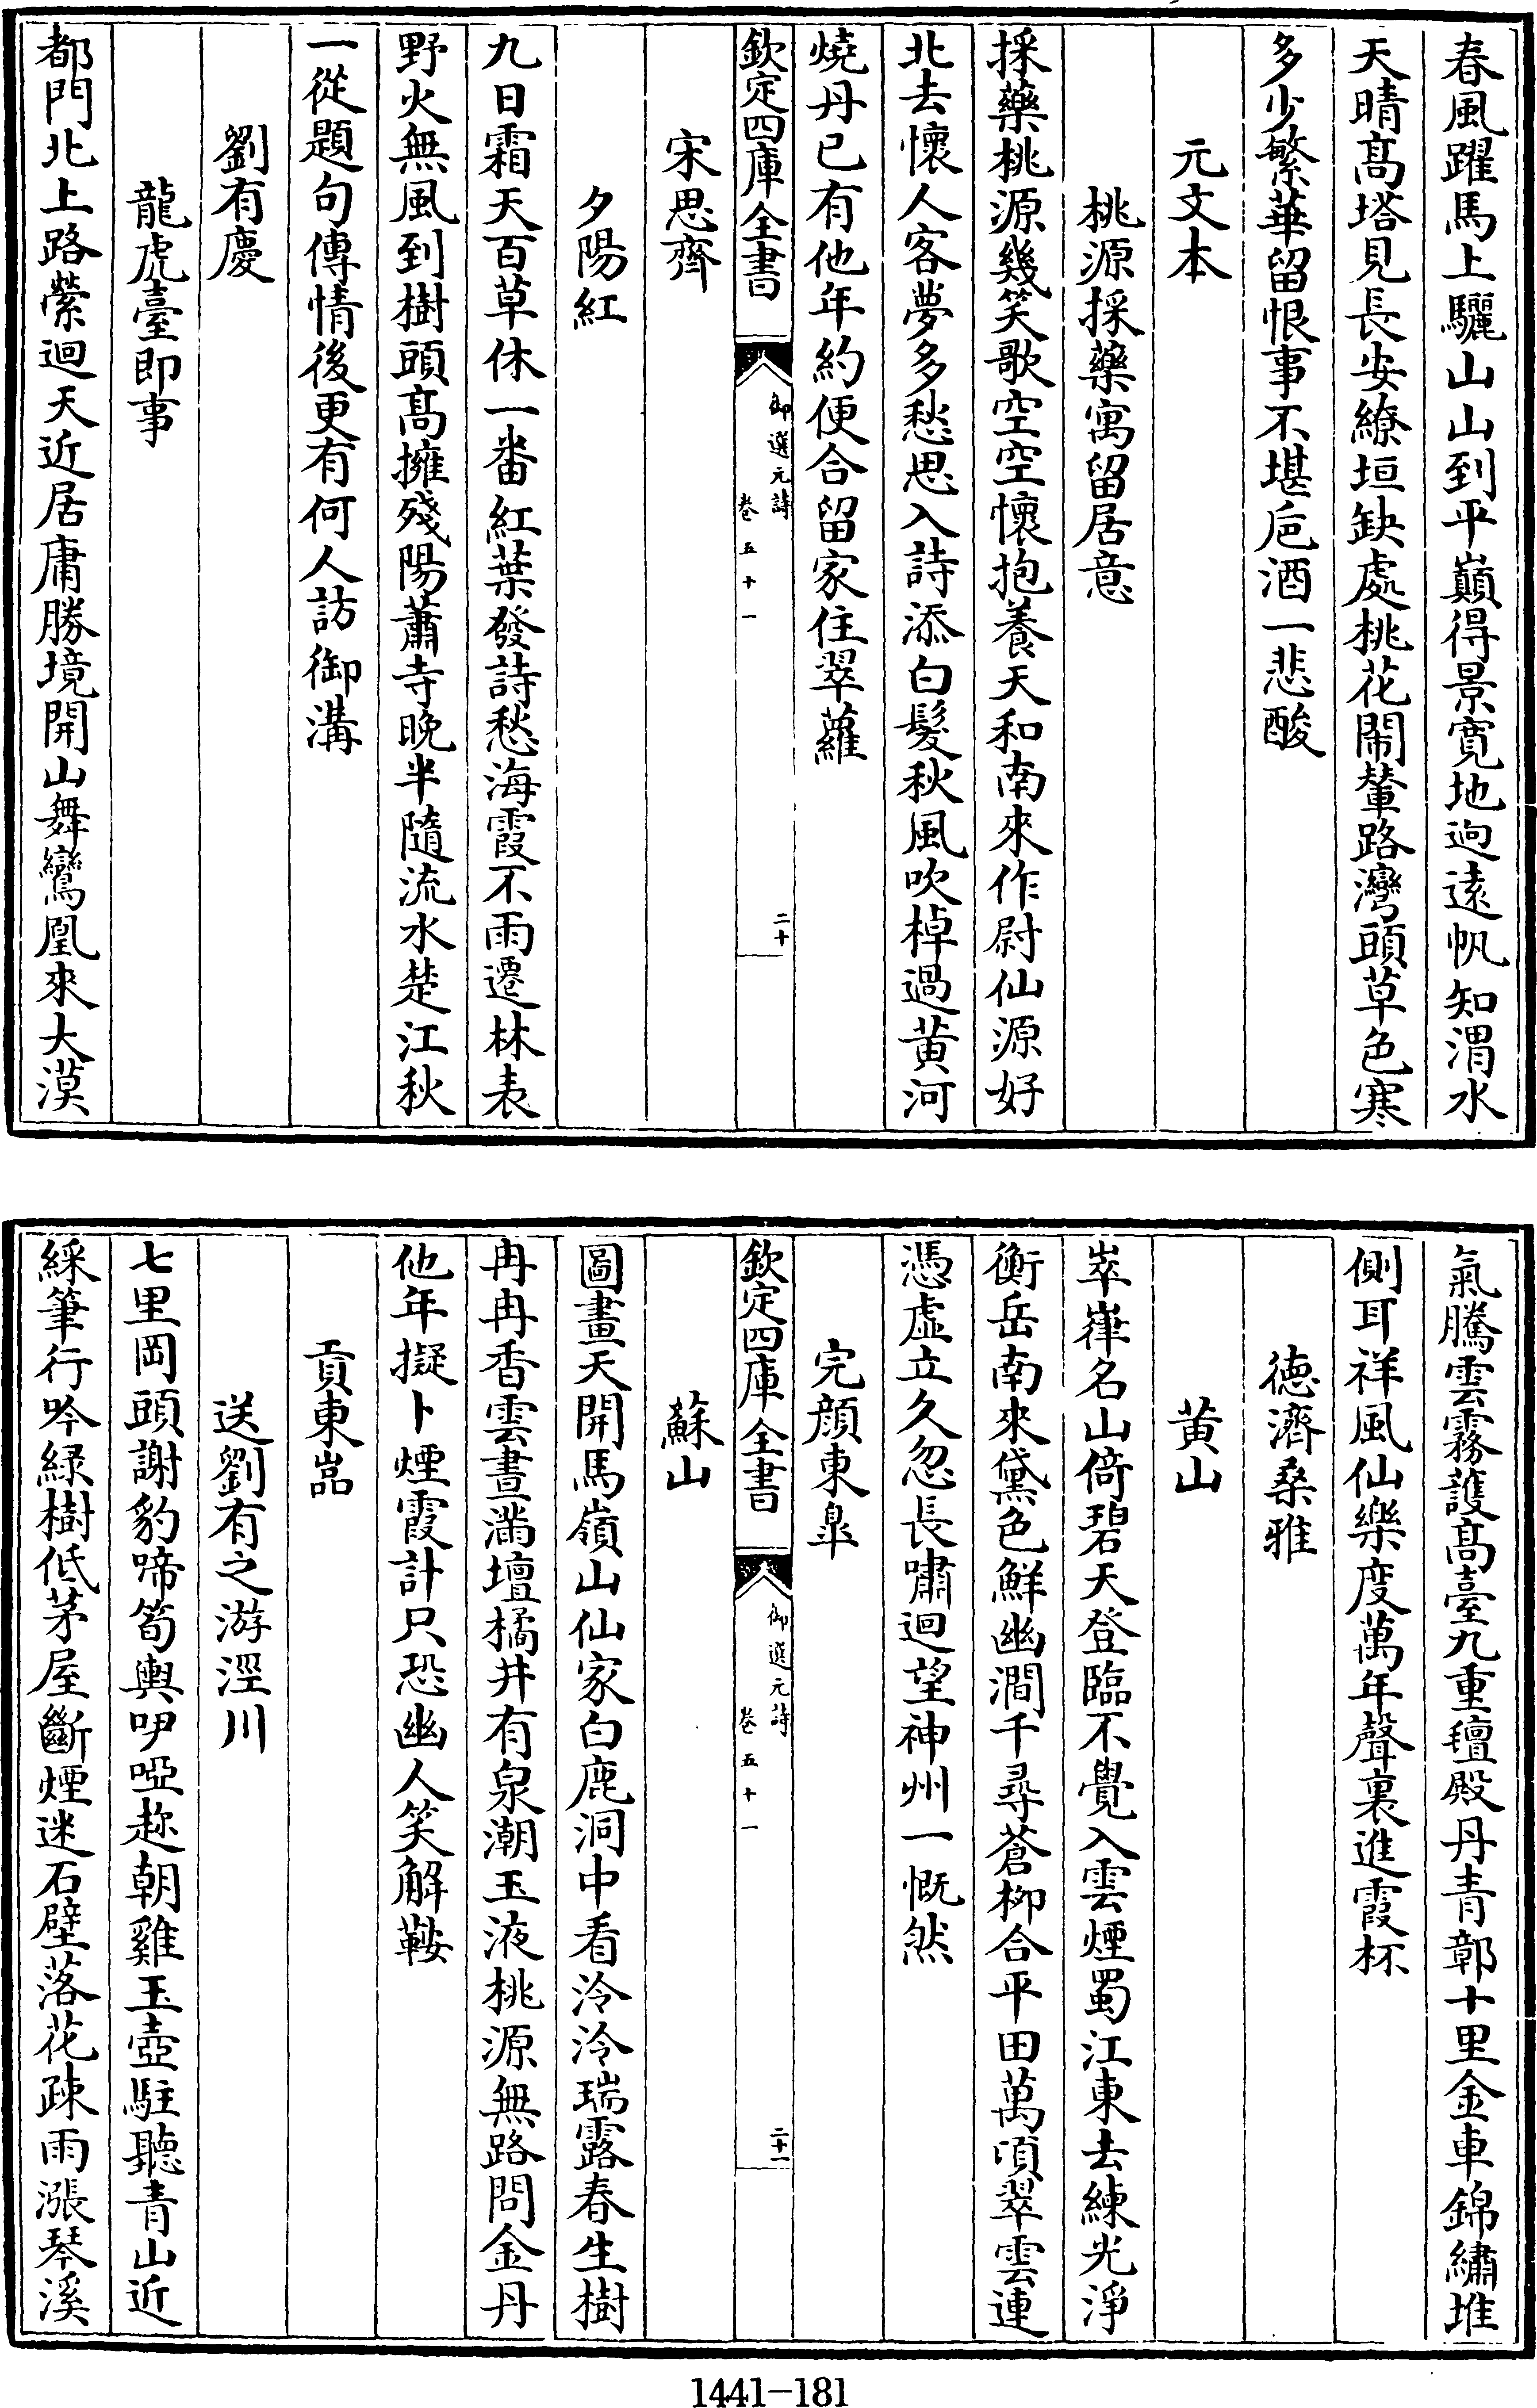 春風躍馬上驪山山到平巔得景寛地迥遠帆知渭水
天晴髙塔見長安繚垣缺處桃花鬧輦路灣頭草色寒
多少繁華留恨事不堪巵酒一悲酸
元文本
桃源採藥寓留居意
採藥桃源幾笑歌空空懷抱養天和南來作尉仙源好
北去懷人客夢多愁思入詩添白髮秋風吹棹過黃河
燒丹已有他年約便合留家住翠蘿
欽定四庫全書
御選元詩
卷五十一
二十
宋思齊
夕陽紅
九日霜天百草休一番紅葉發詩愁海霞不雨遷林表
野火無風到樹頭髙擁殘陽蕭寺晚半隨流水楚江秋
一從題句傳情後更有何人訪御溝
劉有慶
龍虎臺即事
都門北上路縈迴天近居庸勝境開山舞鸞凰來大漠
氣騰雲霧護髙臺九重䄠殿丹青鄣十里金車錦繡堆
側耳祥風仙樂度萬年聲裏進霞杯
德濟桑雅
黃山
崒嵂名山倚碧天登臨不覺入雲煙蜀江東去練光淨
衡岳南來黛色鮮幽澗千尋蒼柳合平田萬頃翠雲連
憑虛立久忽長嘯迴望神州一慨然
完顏東皐
欽定四庫全書
御選元詩
卷五十一
二十一
蘇山
圖畫天開馬嶺山仙家白鹿洞中看泠泠瑞露春生樹
冉冉香雲晝滿壇橘井有泉潮玉液桃源無路問金丹
他年擬卜煙霞計只恐幽人笑解鞍
貢東嵓
送劉有之游涇川
七里岡頭謝豹啼筍輿咿啞趂朝雞玉壺駐聽青山近
綵筆行吟緑樹低茅屋斷煙迷石壁落花踈雨漲琴溪
1441-181